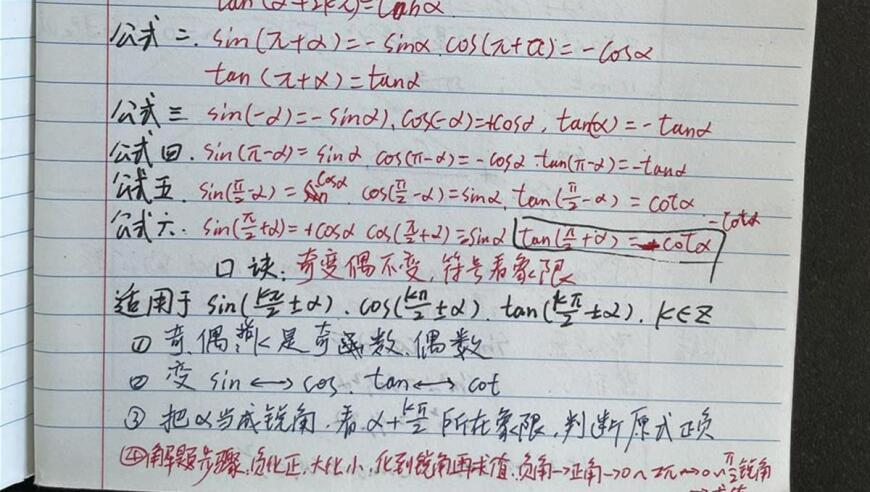 tan(α+2kπ)=tanα
公式二. sin(π+α)=-sinα cos(π+α)=-cosα
tan(π+α)=tanα
公式三 sin(-α)=-sinα、cos(-α)=+cosα, tan(-α)=-tanα
公式四. sin(π-α)=sinα cos(π-α)=-cosα tan(π-α)=-tanα
公式五. sin(π/2-α)=cosα cos(π/2-α)=sinα, tan(π/2-α)=cotα
公式六. sin(π/2+α)=+cosα cos(π/2+α)=-sinα tan(π/2+α)=-cotα -cotα
口诀: 奇变偶不变, 符号看象限
适用于 sin(kπ/2±α). cos(kπ/2±α). tan(kπ/2±α). k∈Z
① 奇、偶指k是奇函数、偶数
② 变 sin⟷cos. tan⟷cot
③ 把α当成锐角, 看α+kπ/2所在象限, 判断原式正负
④解题步骤, 负化正, 大化小, 化到锐角再求值. 负角→正角→0~2π→0~π/2锐角